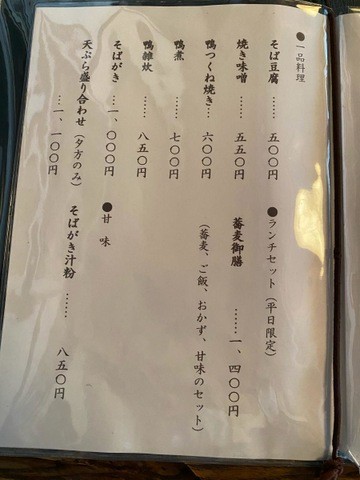 ●一品料理
そば豆腐……五〇〇円
焼き味噌……五五〇円
鴨つくね焼き…六〇〇円
鴨煮……七〇〇円
鴨雑炊……八五〇円
そばがき…一、〇〇〇円
天ぷら盛り合わせ（夕方のみ）
…一、一〇〇円
●ランチセット（平日限定）
蕎麦御膳……一、四〇〇円
（蕎麦、ご飯、おかず、甘味のセット）
●甘味
そばがき汁粉……八五〇円